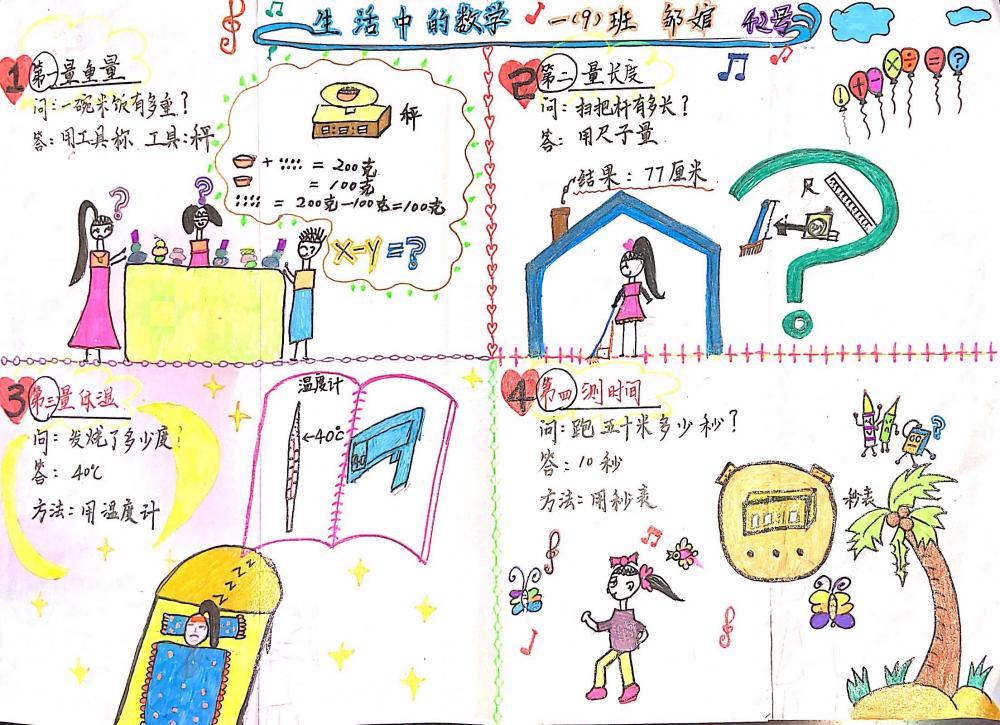 生活中的数学 一(9)班 邹媗 42号
1 第一 量重量
问:一碗米饭有多重?
答:用工具称 工具:秤
秤
+ = 200克
= 100克
= 200克-100克=100克
x-y=?
2 第二 量长度
问:扫把杆有多长?
答:用尺子量
结果:77厘米
尺
! + - × ÷ = ?
3 第三量体温
问:发烧了多少度?
答:40℃
方法:用温度计
温度计
←40℃
zzzz
4 第四 测时间
问:跑五十米多少秒?
答:10秒
方法:用秒表
秒表